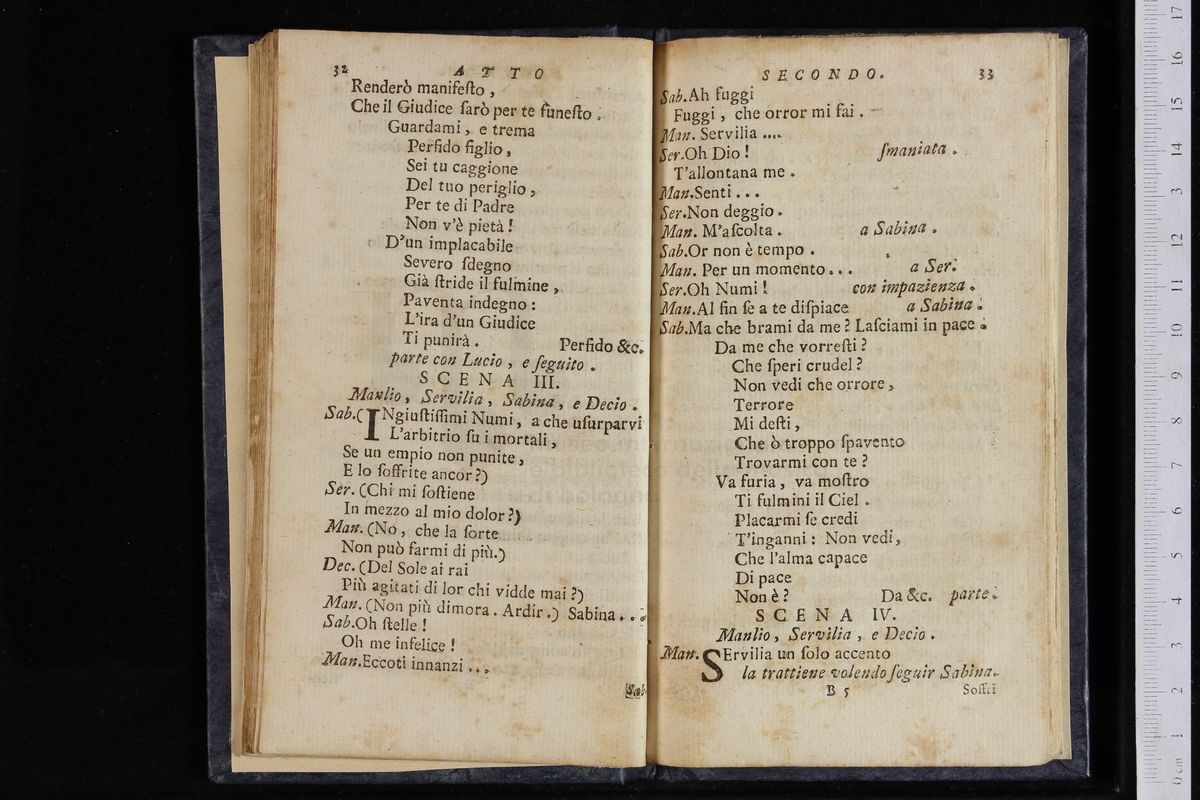 32 ATTO
Renderò manifeſto,
Che il Giudice farò per te funeſto.
Guardami, e trema
Perfido figlio,
Sei tu caggione
Del tuo periglio,
Per te di Padre
Non v'è pietà!
D'un implacabile
Severo ſdegno
Già ſtride il fulmine,
Paventa indegno:
L'ira d'un Giudice
Ti punirà. Perfido &c.
parte con Lucio, e ſeguito.
SCENA III.
Manlio, Servilia, Sabina, e Decio.
Sab.(INgiuſtiſſimi Numi, a che uſurparvi
L'arbitrio ſu i mortali,
Se un empio non punite,
E lo ſoffrite ancor?)
Ser. (Chi mi ſoſtiene
In mezzo al mio dolor?)
Man. (No, che la ſorte
Non può farmi di più.)
Dec. (Del Sole ai rai
Più agitati di lor chi vidde mai?)
Man. (Non più dimora. Ardir.) Sabina...
Sab.Oh ſtelle!
Oh me infelice!
Man.Eccoti innanzi...
Sab
SECONDO. 33
Sab.Ah fuggi
Fuggi, che orror mi fai.
Man. Servilia....
Ser.Oh Dio! ſmaniata.
T'allontana me.
Man.Senti...
Ser.Non deggio.
Man. M'aſcolta. a Sabina.
Sab.Or non è tempo.
Man. Per un momento... a Ser.
Ser.Oh Numi! con impazienza.
Man.Al fin ſe a te diſpiace a Sabina.
Sab.Ma che brami da me? Laſciami in pace.
Da me che vorreſti?
Che ſperi crudel?
Non vedi che orrore,
Terrore
Mi deſti,
Che ò troppo ſpavento
Trovarmi con te?
Va furia, va moſtro
Ti fulmini il Ciel.
Placarmi ſe credi
T'inganni: Non vedi,
Che l'alma capace
Di pace
Non è? Da &c. parte.
SCENA IV.
Manlio, Servilia, e Decio.
Man. SErvilia un ſolo accento
la trattiene volendo ſeguir Sabina.
B 5 Soffri